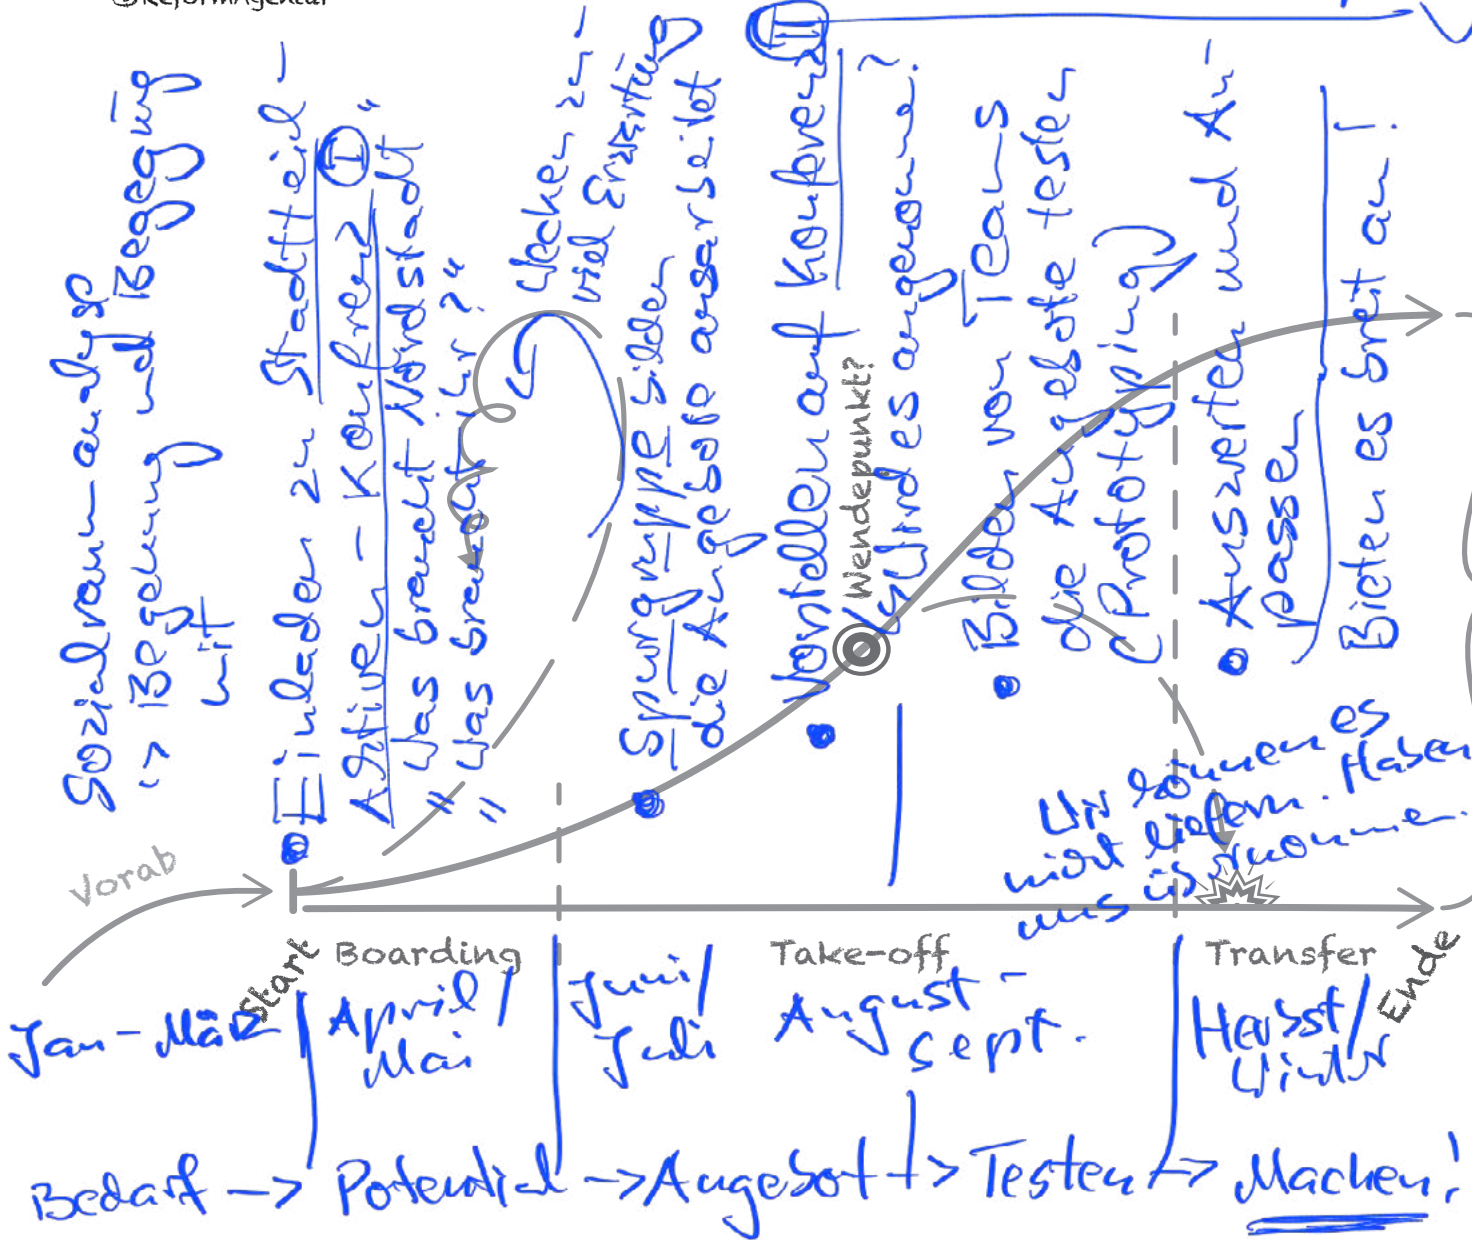 ©ReformAgentur
Sozialraumanalyse
-> Begehung und Begegnung
mit
Einladen zu Stadtteil-
Aktiven-Konfrenz I
"Was braucht Nordstadt"
"Was braucht ihr?"
Wecken zu-
viel Erwartung
Spurgruppe bilden
die Angebote ausarbeitet
II
Vorstellen auf Konferenz
Wird es angenomme?
Wendepunkt?
Bilden von Teams
die Angebote testen
(Prototyping)
Auswerten und An-
passen
Bieten es bret an!
Wir können es
nicht liefern. Haben
uns übernommen.
Vorab
Start
Boarding
Take-off
Transfer
Ende
Jan-März
April/
Mai
Juni/
Juli
August-
Sept.
Herbst/
Winter
Bedarf -> Potential -> Angebot -> Testen -> Machen!